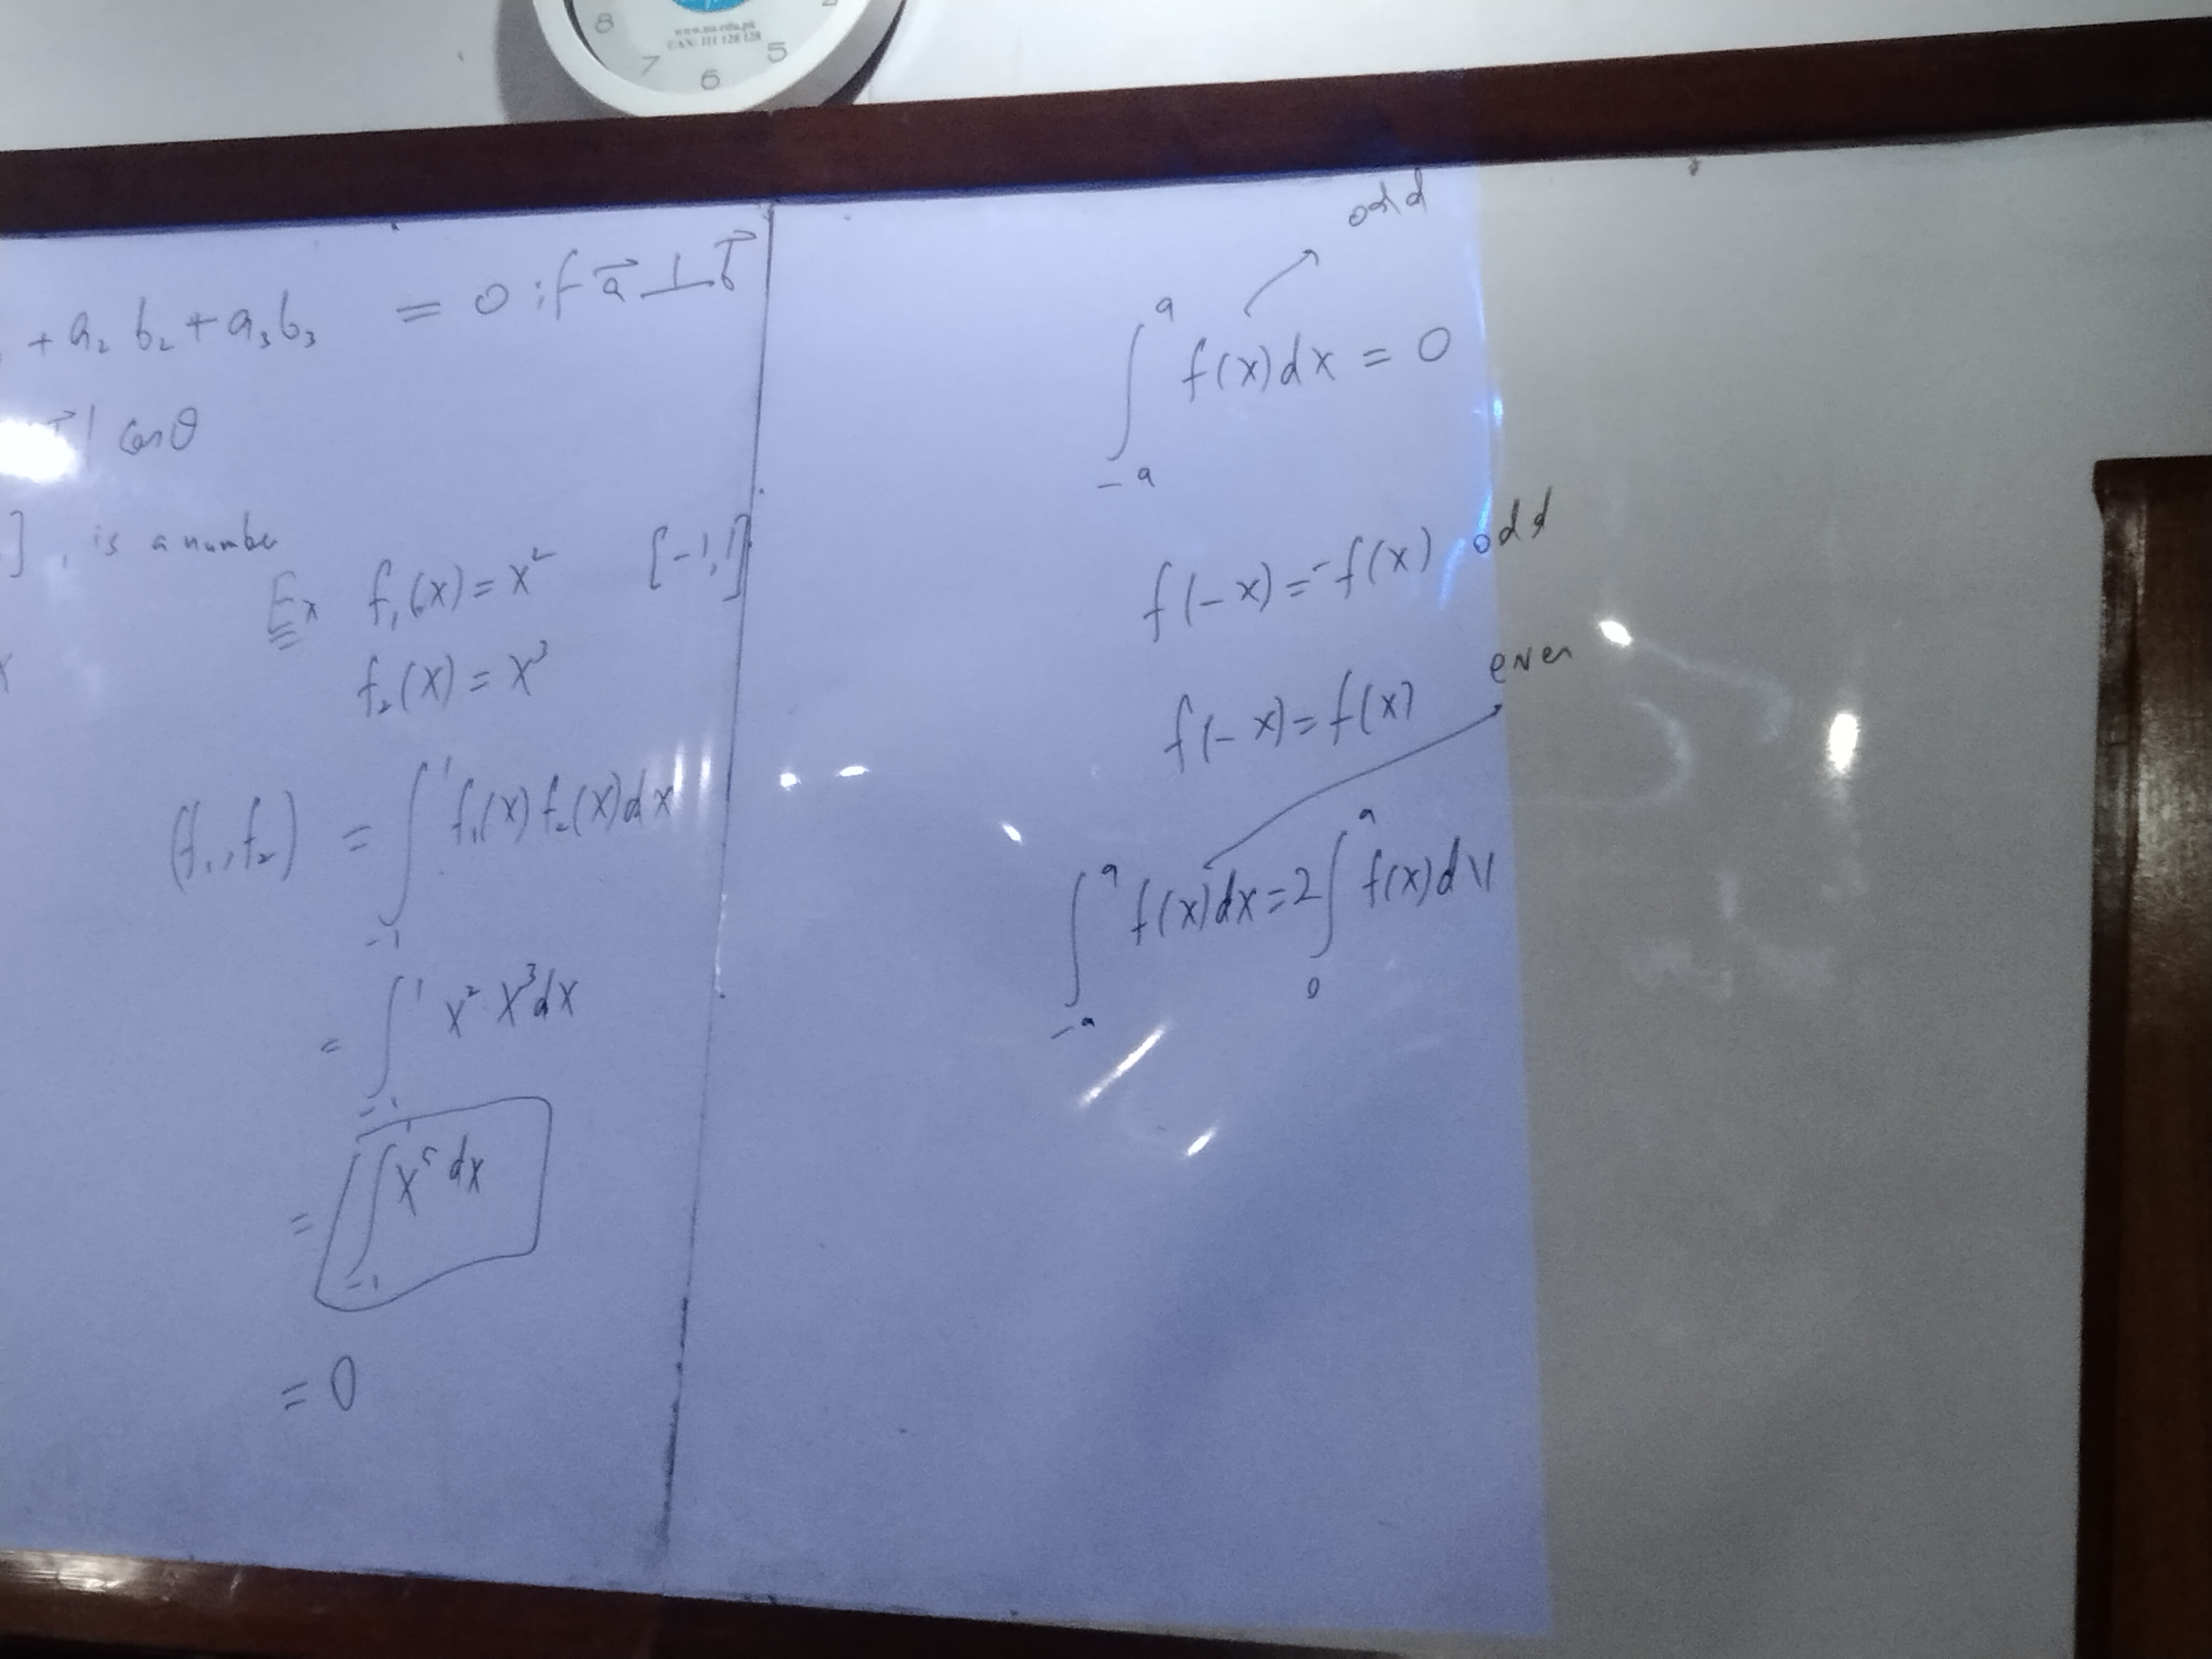 8 7 6 5 2
www.nu.edu.pk
UAN: 111 128 128
+ a₂ b₂ + a₃ b₃ = 0 if a⃗ ⊥ b⃗
| cos θ
], is a number
Ex f₁(x) = x² [-1, 1]
f₂(x) = x³
(f₁, f₂) = ∫₋₁¹ f₁(x) f₂(x) dx
= ∫₋₁¹ x² x³ dx
= ∫₋₁¹ x⁵ dx
= 0
odd
∫₋ₐᵃ f(x) dx = 0
f(-x) = -f(x) odd
f(-x) = f(x) even
∫₋ₐᵃ f(x) dx = 2 ∫₀ᵃ f(x) dx